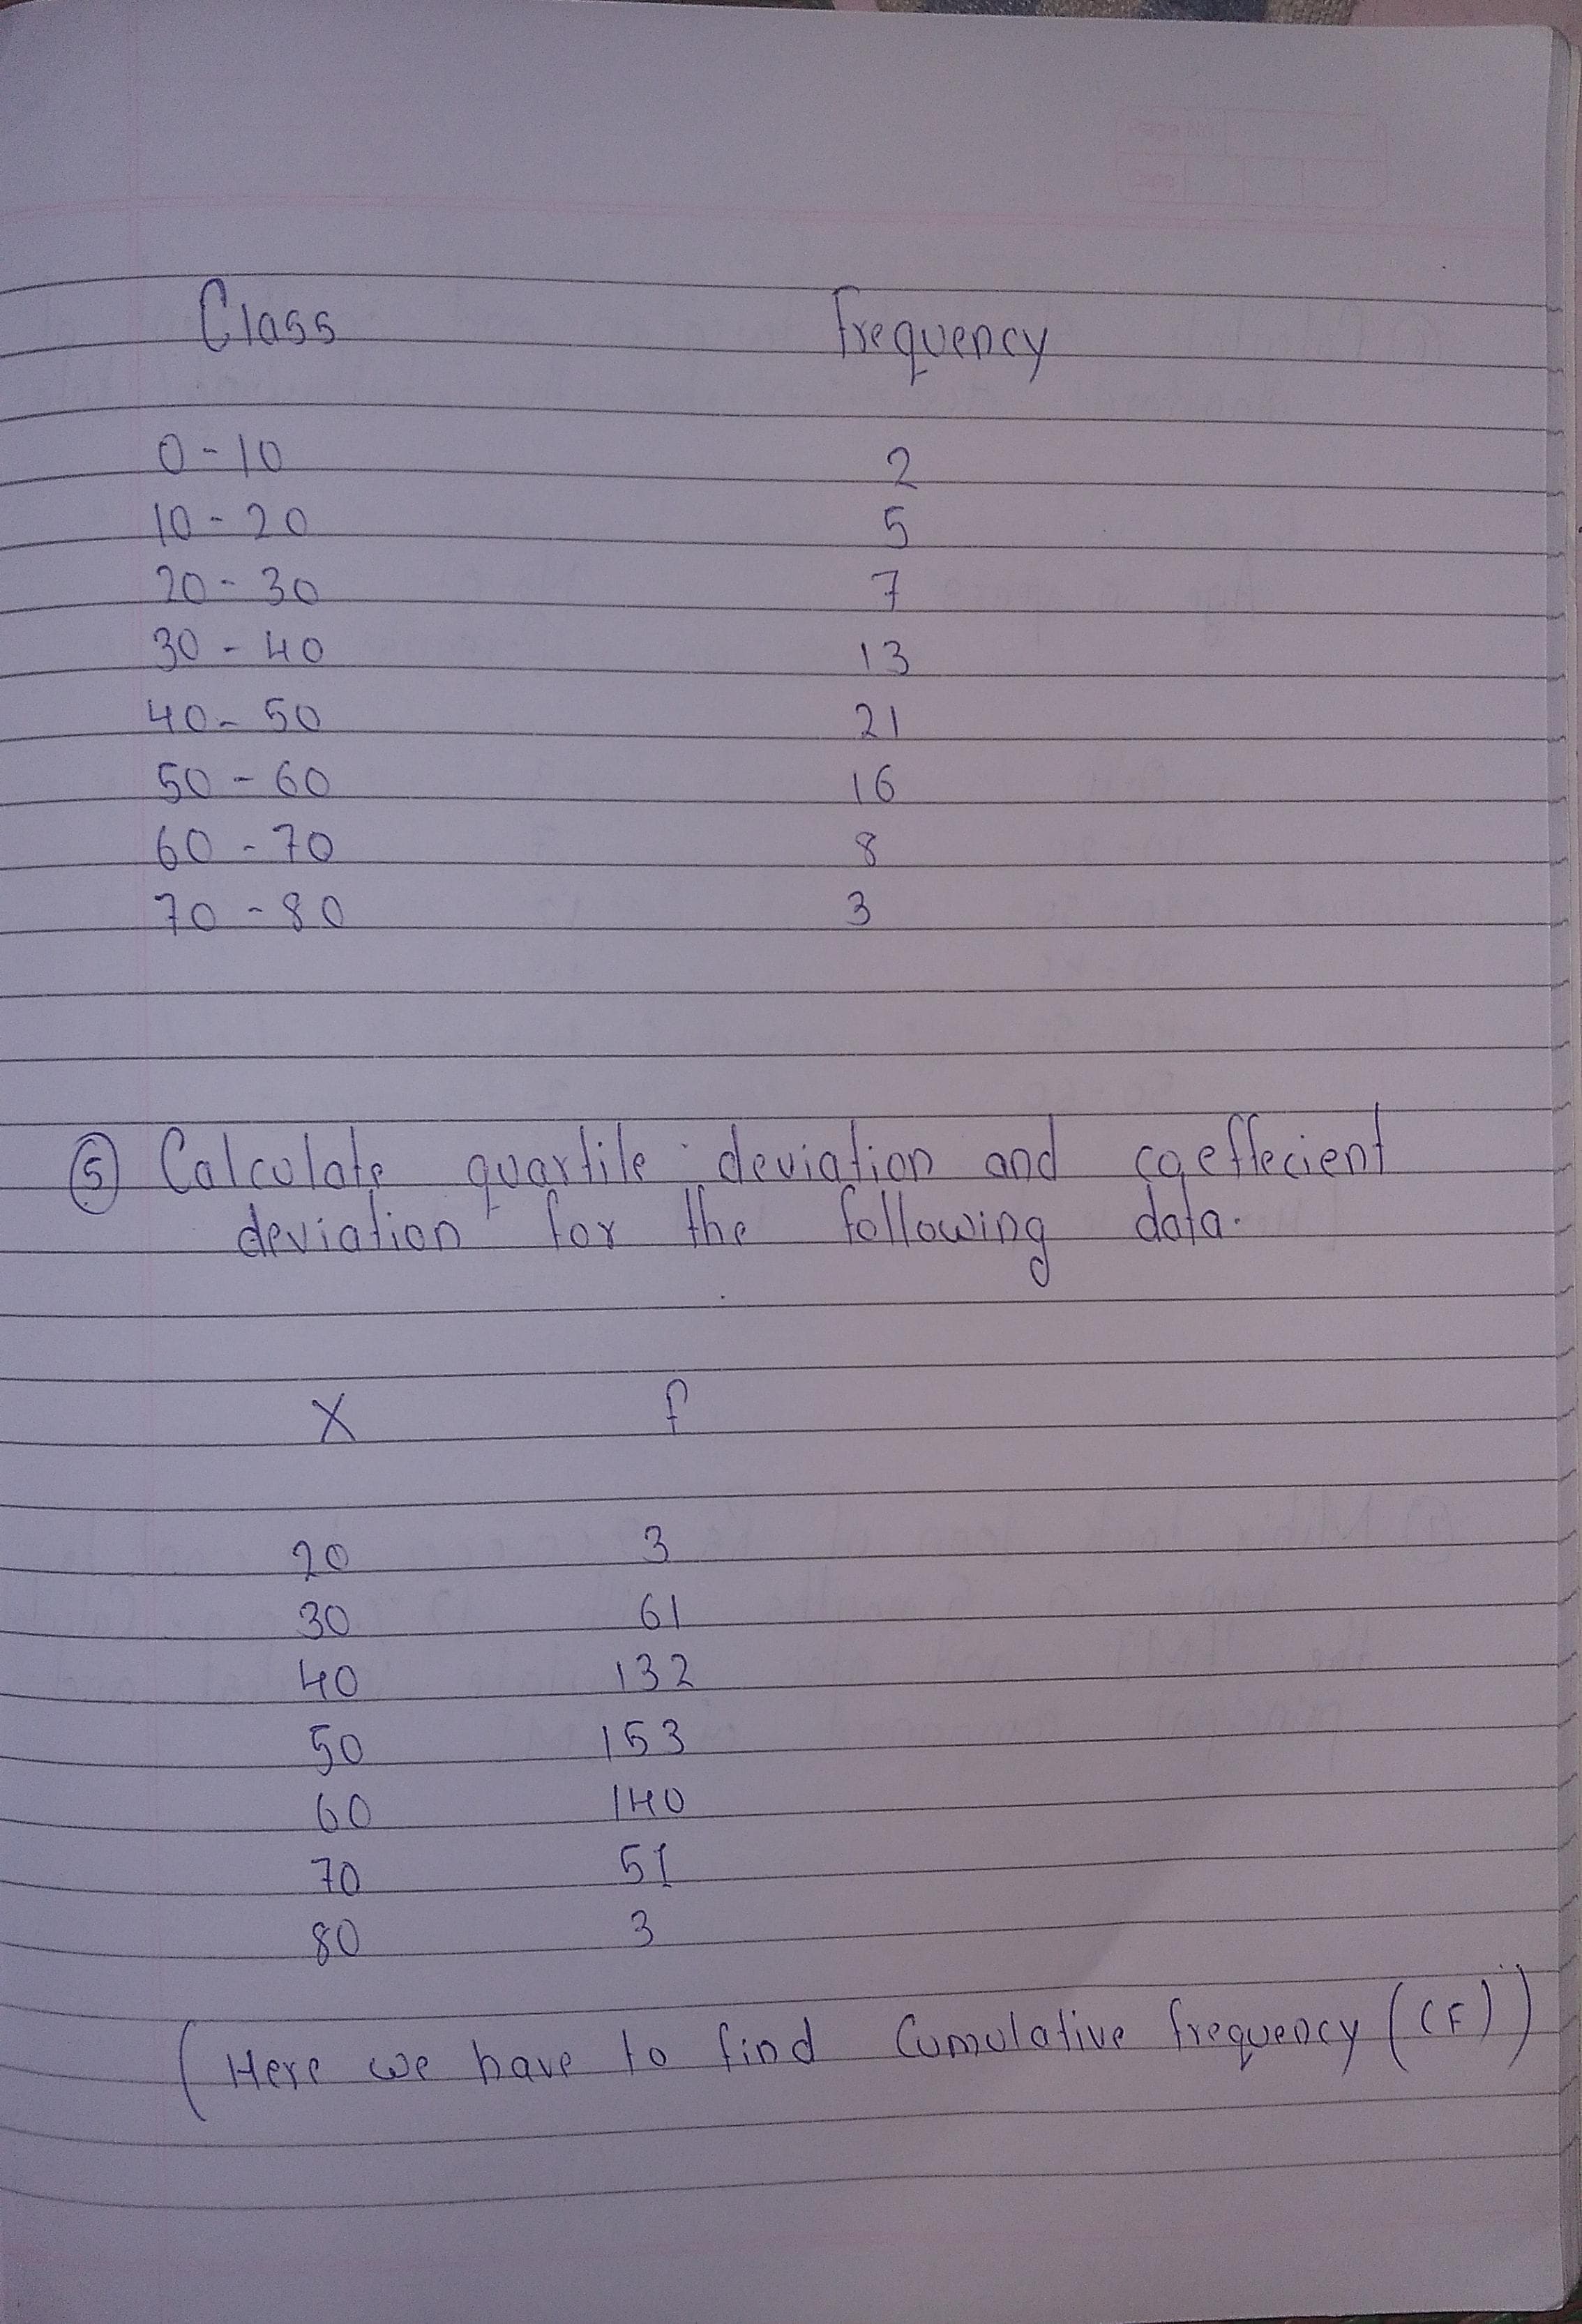 Class Frequency
0-10 2
10-20 5
20-30 7
30-40 13
40-50 21
50-60 16
60-70 8
70-80 3
(5) Calculate quartile deviation and coeffecient
deviation for the following data.
X f
20 3
30 61
40 132
50 153
60 140
70 51
80 3
(Here we have to find Cumulative frequency (CF))